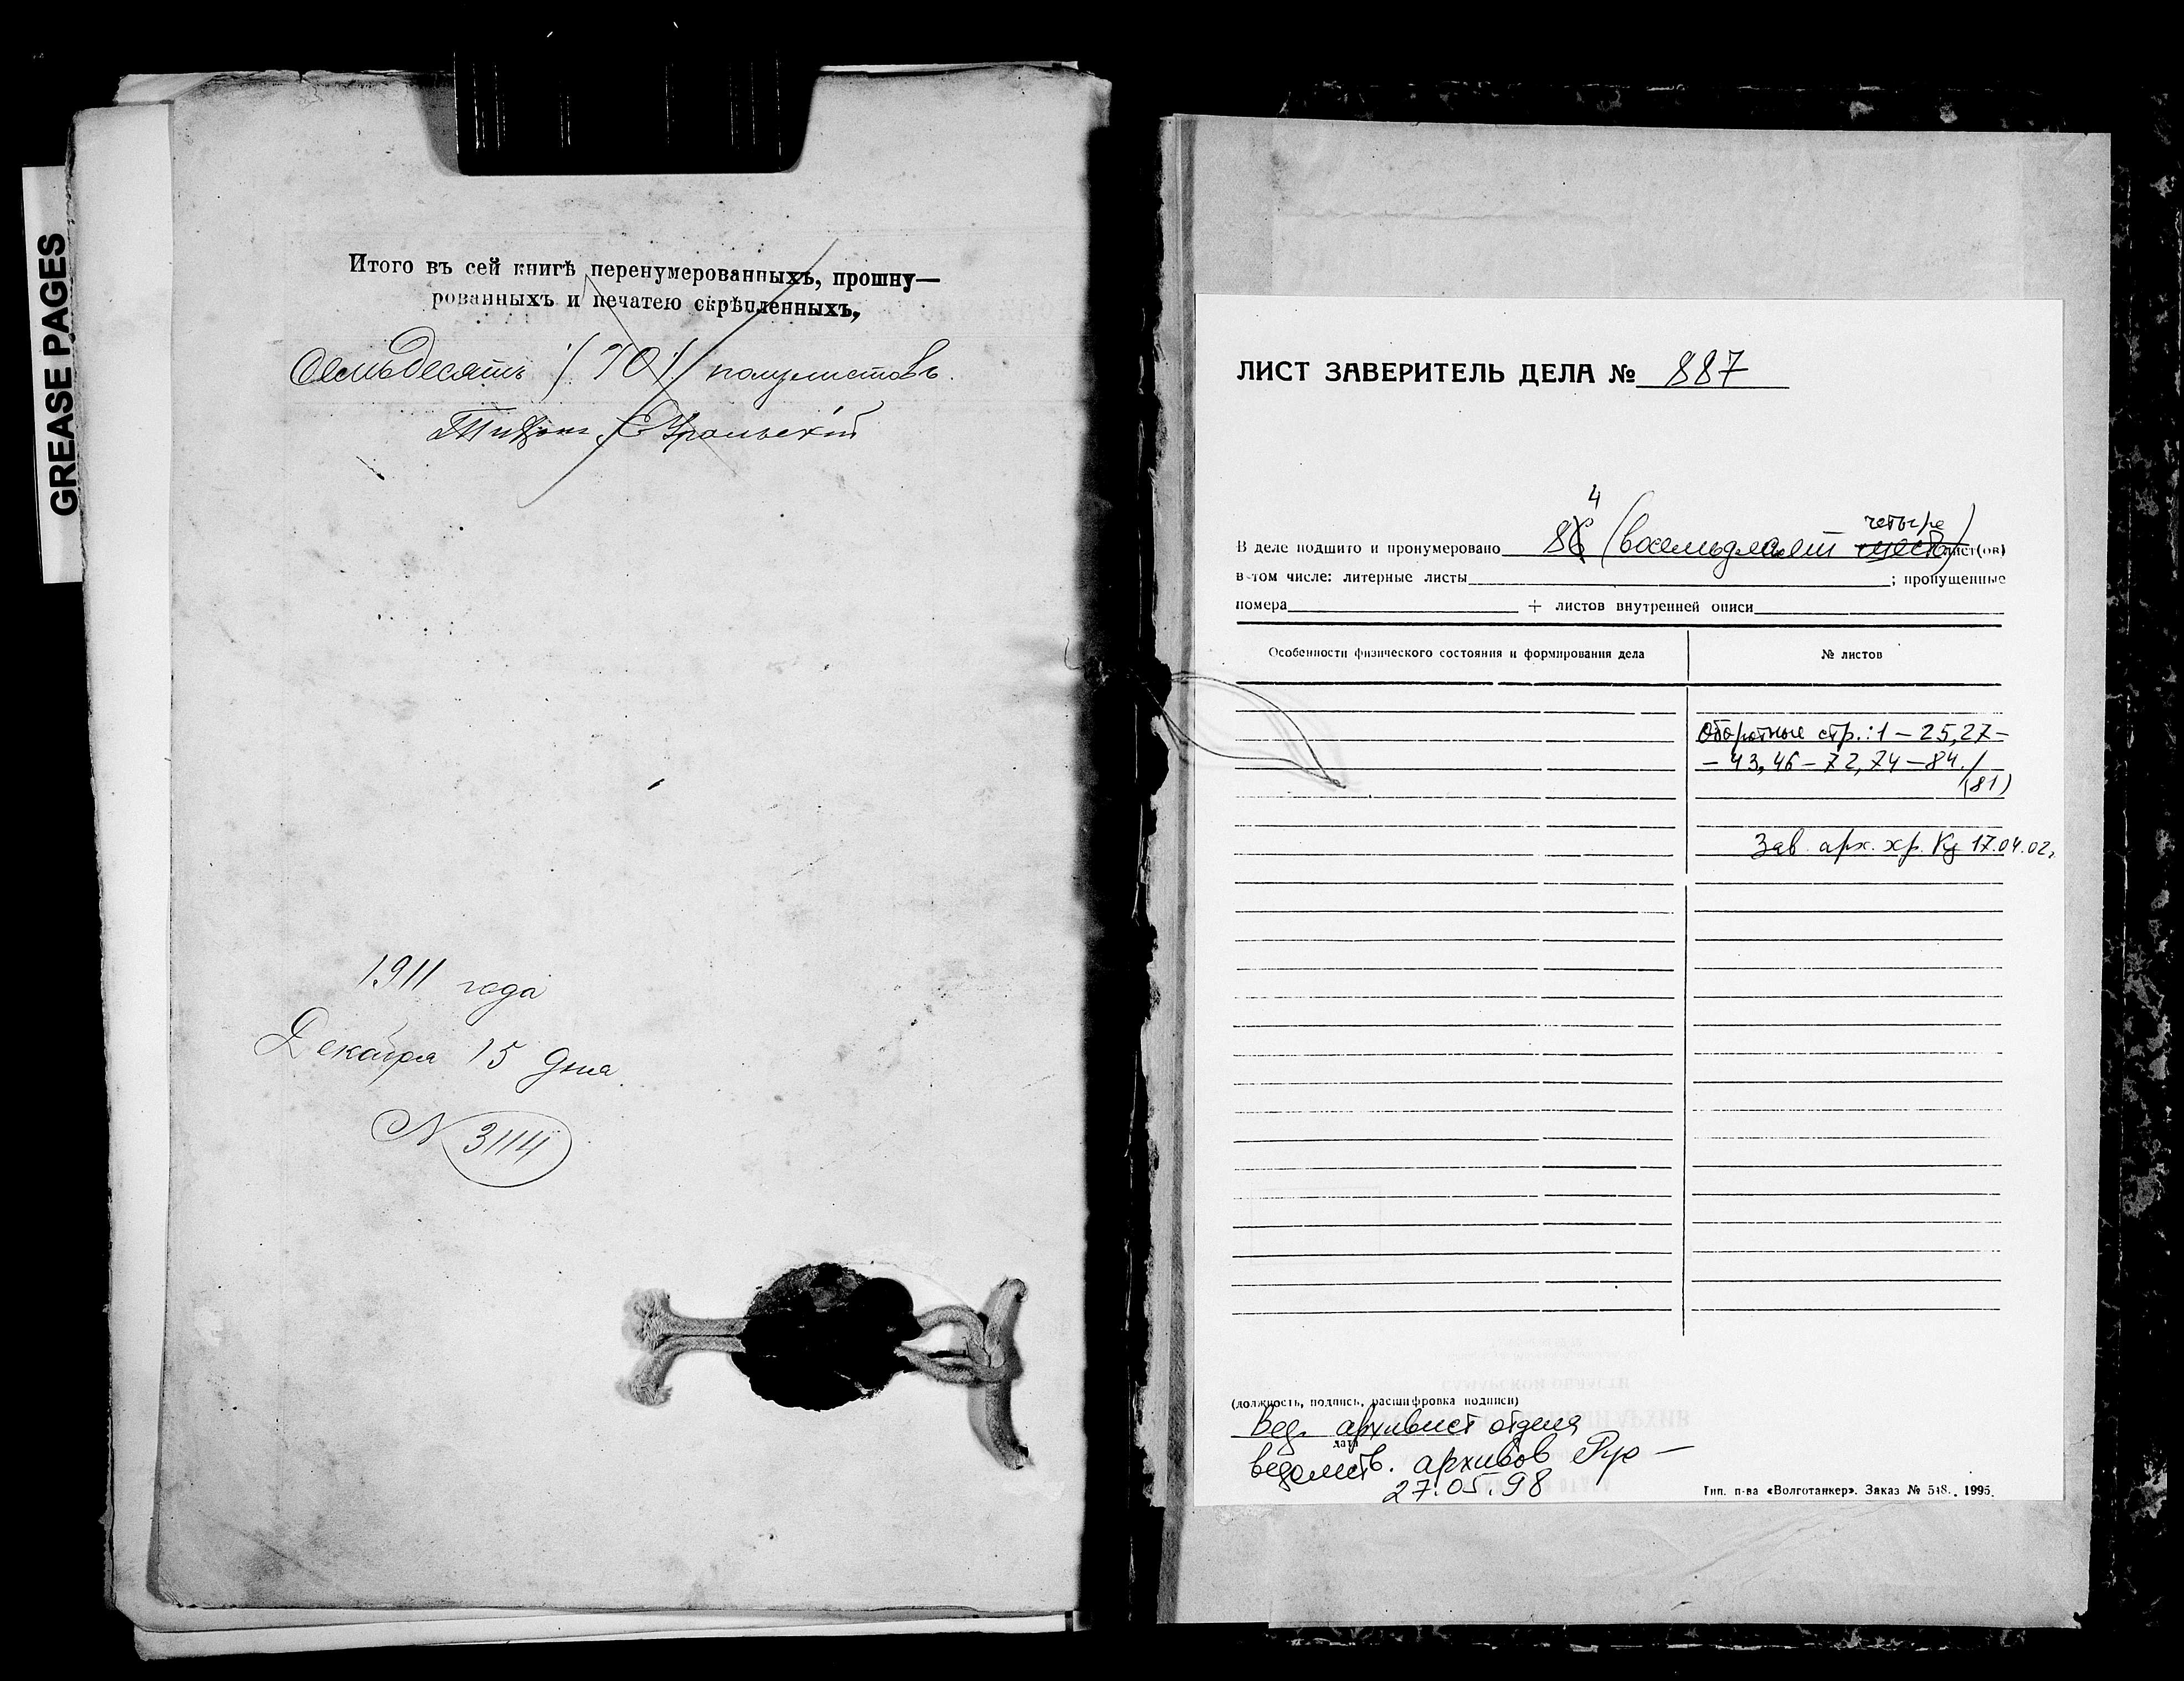 GREASE PAGES
Итого въ сей книгѣ перенумерованныхъ, прошну—
рованныхъ и печатею скрѣпленныхъ,
Семьдесятъ (70) полулистовъ.
Тихонъ Е. Уральскій
1911 года
Декабря 15 дня
№ 3114
ЛИСТ ЗАВЕРИТЕЛЬ ДЕЛА № 887
4
четыре
В деле подшито и пронумеровано 86 (восемьдесят шесть) лист(ов)
в том числе: литерные листы ; пропущенные
номера + листов внутренней описи
Особенности физического состояния и формирования дела № листов
Оборотные стр.: 1 – 25, 27 –
– 43, 46 – 72, 74 – 84./
(81)
Зав. арх. хр. 17.04.02г.
(должность, подпись, расшифровка подписи)
Вед. архивист отдела
дата
ведомств. архивов
27.05.98
Тип. п-ва «Волготанкер». Заказ № 548. 1995.